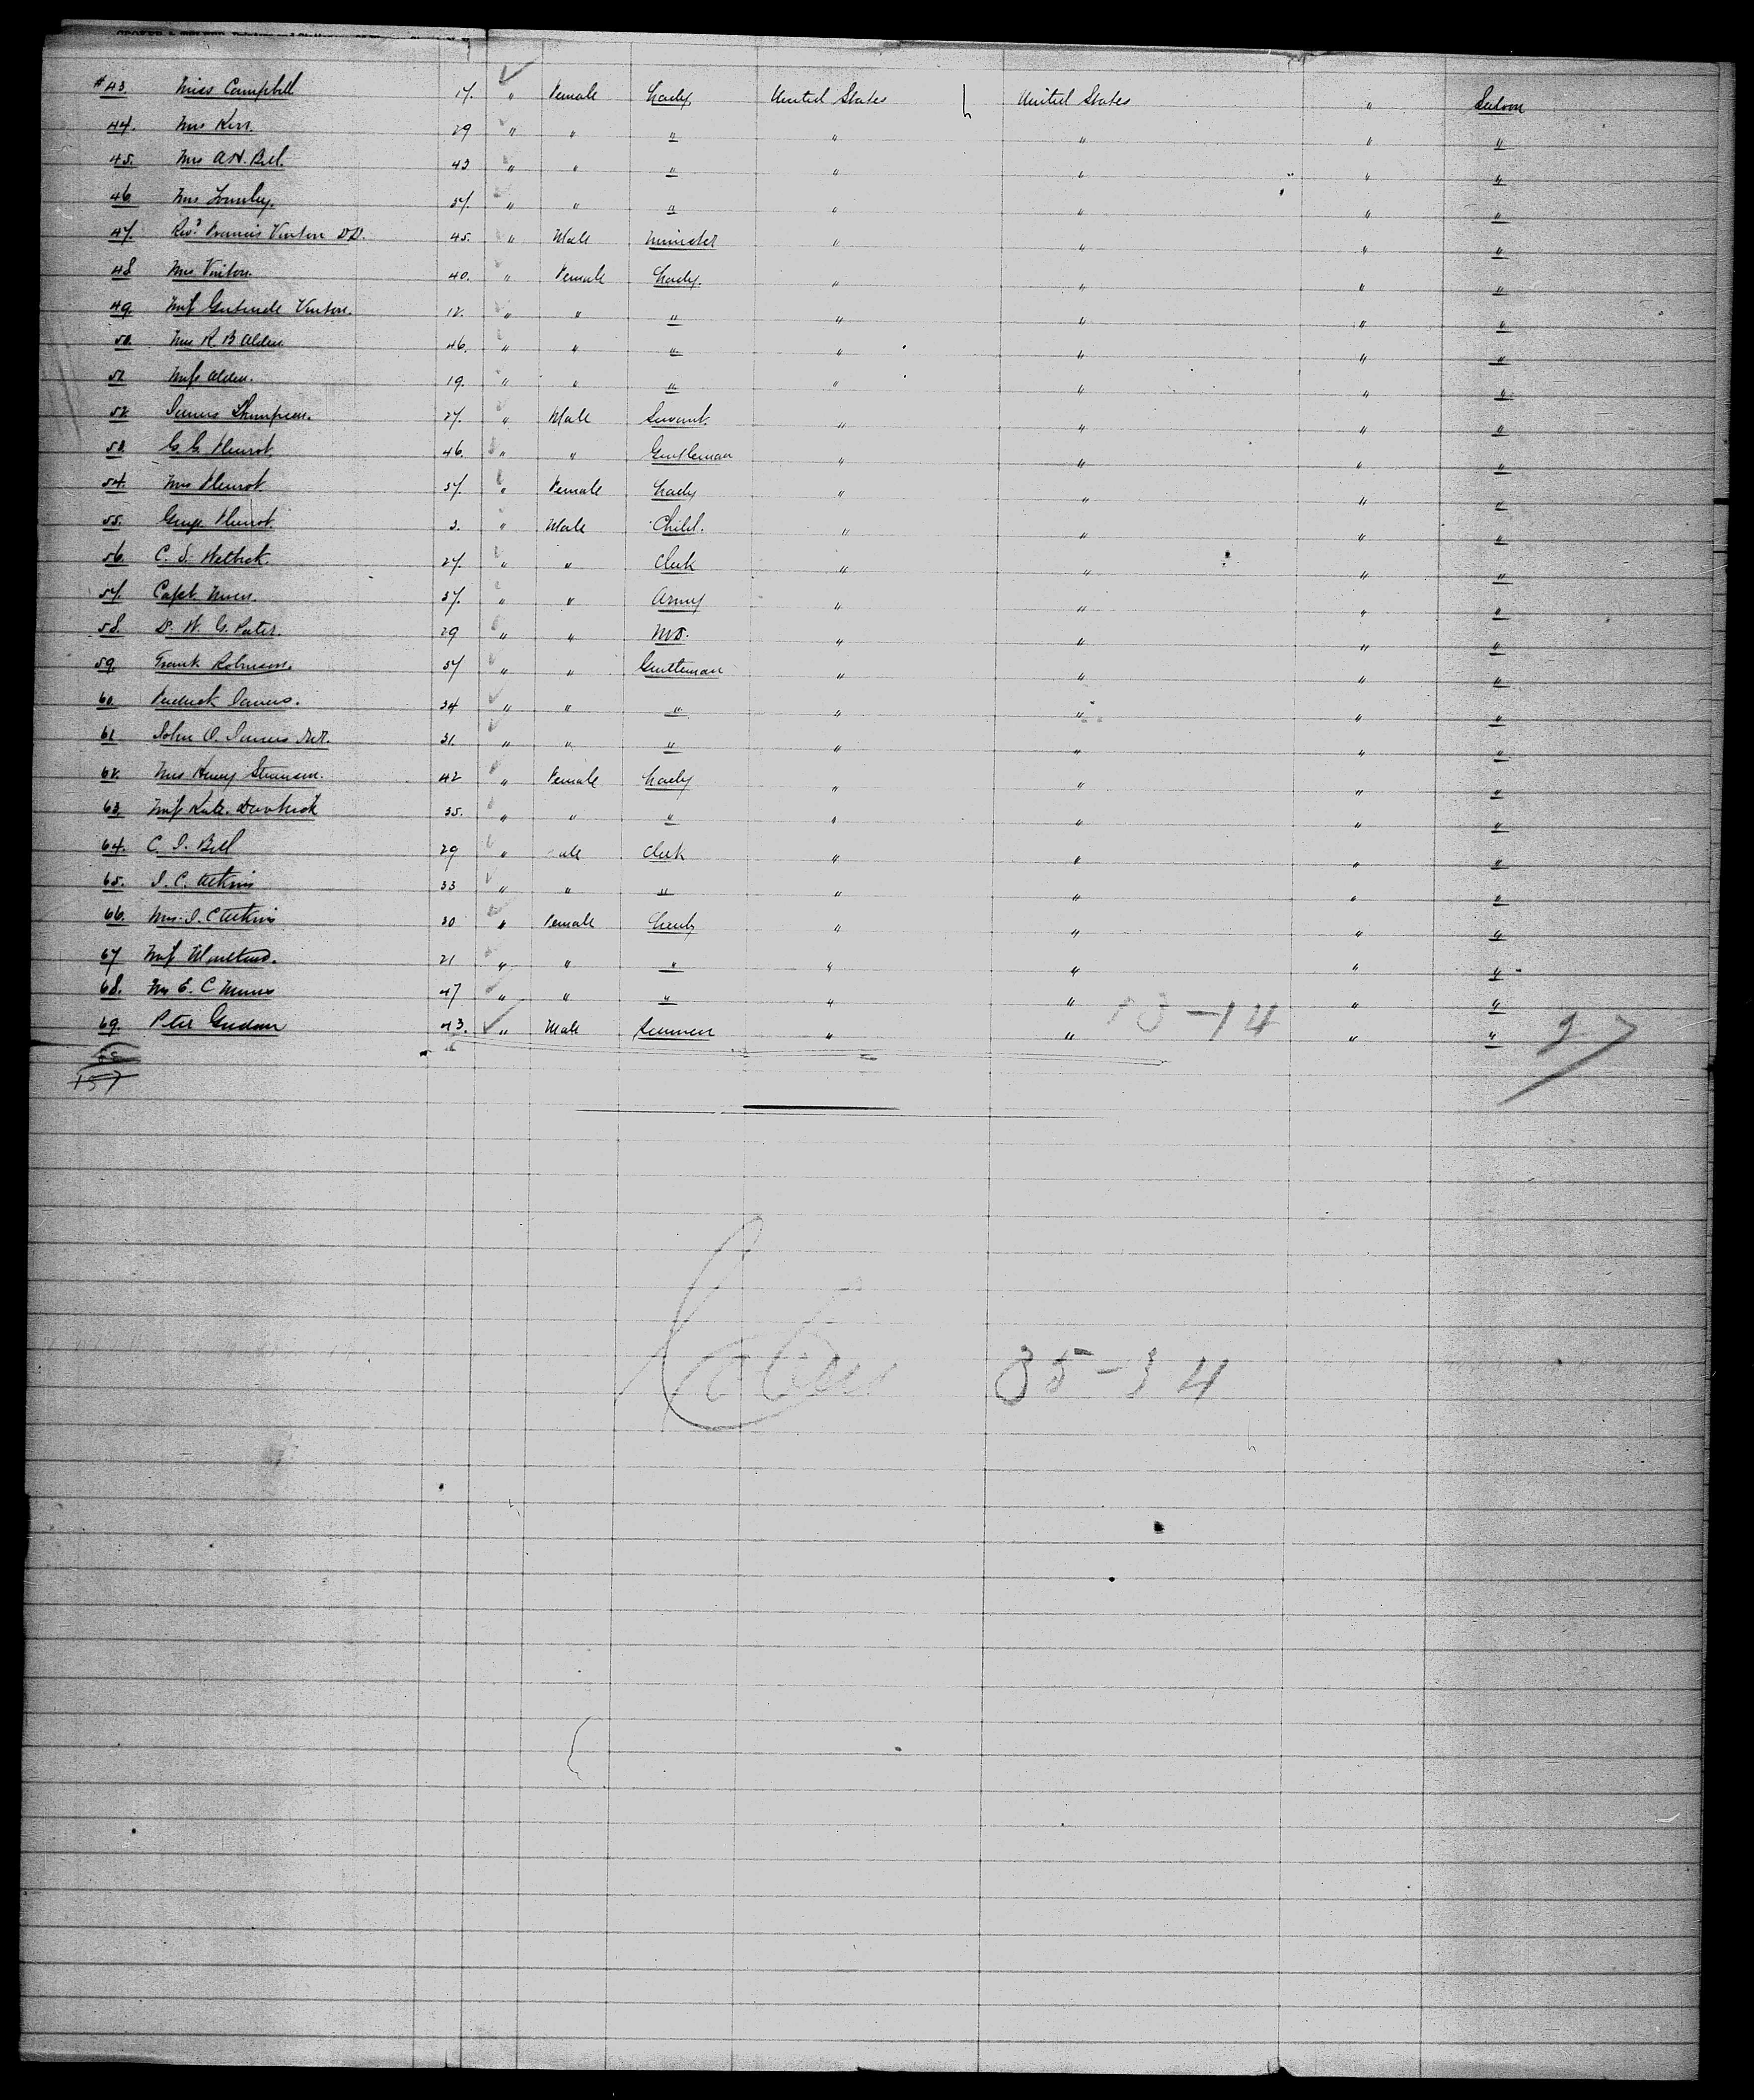 #43. Miss Campbell 17. " Female Lady United States United States " Saloon
44. Mrs Kerr. 29 " " " " " " "
45. Mrs A. H. Bell. 43 " " " " " " "
46 Mrs 37. " " " " " " "
47. Revd Francis Vinton DD. 45. " Male Minister " " " "
48 Mrs Vinton. 40. " Female Lady. " " " "
49. Miss Gertrude Vinton. 12. " " " " " " "
50. Mrs R. B Alden 46. " " " " " " "
51 Miss Alden. 19. " " " " " " "
52 James Thompson. 27. " Male Servant. " " " "
53. G. G. Fleurot. 46. " " Gentleman " " " "
54. Mrs Fleurot. 37. " Female Lady " " " "
55. Fleurot. 3. " Male Child. " " " "
56. C. S. 27. " " Clerk " " " "
57. Capt. 37. " " Army " " " "
58. Dr. W. G. 29 " " MD. " " " "
59. Frank Robinson. 37 " " Gentleman " " " "
60. Frederick James. 34 " " " " " " "
61 John O. James 31. " " " " " " "
62. Mrs Henry 42 " Female Lady " " " "
63. Miss Kate 35. " " " " " " "
64. C. J. Bell 29 " ale Clerk " " " "
65. J. C. Atkins 33 " " " " " " "
66. Mrs. J. C Atkins 30 " Female Lady " " " "
67 Miss 21 " " " " " " "
68. Mrs E. C 47 " " " " " " "
69. Peter 43. " Male " " " "
13-14 27
157
35-34